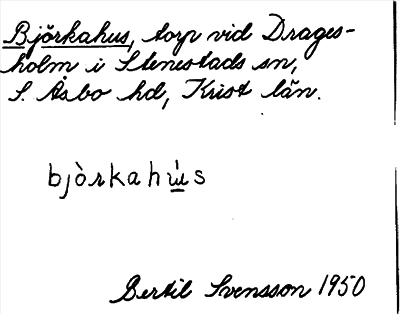 Björkahus, torp vid Drages-
holm i Stenestads sn,
S. Åsbo hd, Krist län.
bjòrkahú̱s
Bertil Svensson 1950